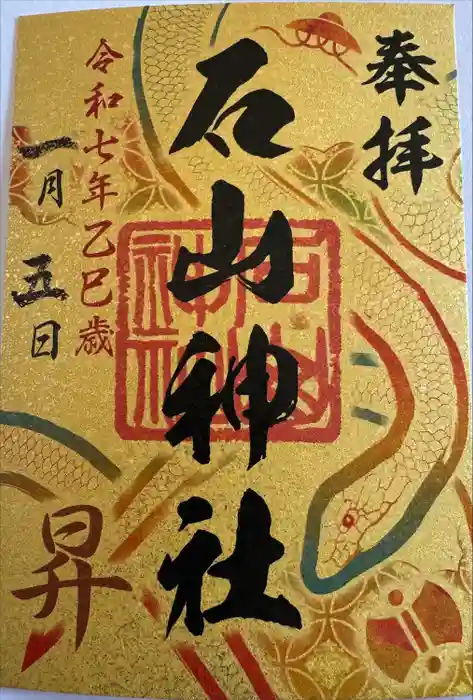 奉拝
石山神社
石山神社
令和七年乙巳歳
一月五日
昇